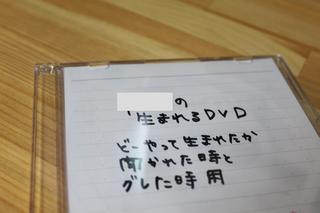 の
「生まれるDVD
どーやって生まれたか
聞かれた時と
グレた時用